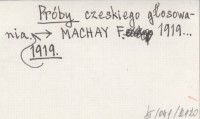 Próby czeskiego głosowa-
nia. → MACHAY F. 1919...
1919.